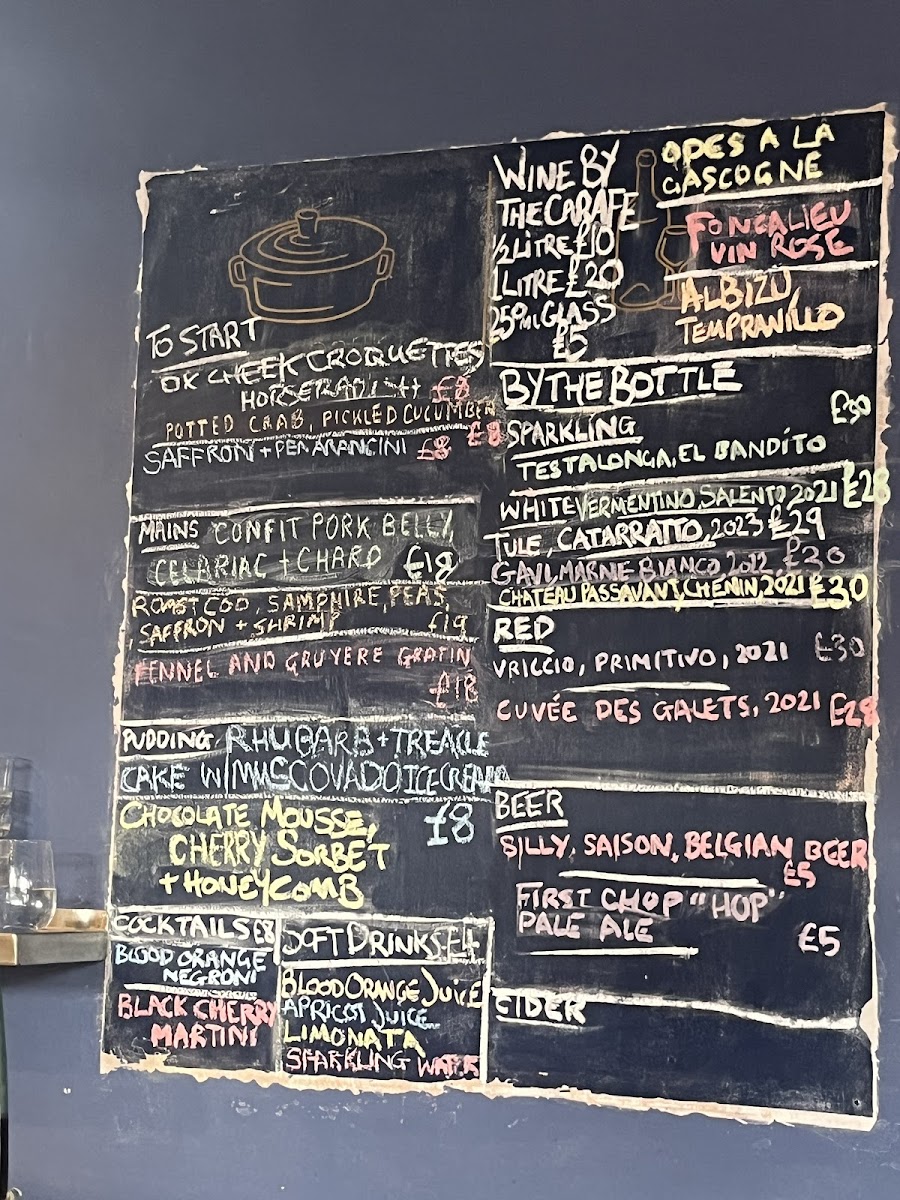 TO START
OX CHEEK CROQUETTES
HORSERADISH £8
POTTED CRAB, PICKLED CUCUMBER
£8
SAFFRON + PEA ARANCINI £8
MAINS CONFIT PORK BELLY,
CELERIAC + CHARD £19
ROAST COD, SAMPHIRE, PEAS,
SAFFRON + SHRIMP £19
FENNEL AND GRUYERE GRATIN
£18
PUDDING RHUBARB + TREACLE
CAKE W/ MUSCOVADO ICE CREAM
CHOCOLATE MOUSSE, £8
CHERRY SORBET
+ HONEYCOMB
COCKTAILS £8
BLOOD ORANGE
NEGRONI
BLACK CHERRY
MARTINI
SOFT DRINKS £4
BLOOD ORANGE JUICE
APRICOT JUICE
LIMONATA
SPARKLING WATER
WINE BY
THE CARAFE
1/2 LITRE £10
1 LITRE £20
250ML GLASS
£5
ODES A LA
GASCOGNE
FONCALIEU
VIN ROSE
ALBIZU,
TEMPRANILLO
BY THE BOTTLE
£30
SPARKLING
TESTALONGA, EL BANDITO
WHITE VERMENTINO, SALENTO, 2021 £28
TULE, CATARRATTO, 2023 £29
GAVI, MARNE BIANCO 2022, £30
CHATEAU PASSAVANT, CHENIN, 2021 £30
RED
VRICCIO, PRIMITIVO, 2021 £30
CUVÉE DES GALETS, 2021 £28
BEER
BILLY, SAISON, BELGIAN BEER
£5
FIRST CHOP "HOP"
PALE ALE £5
CIDER